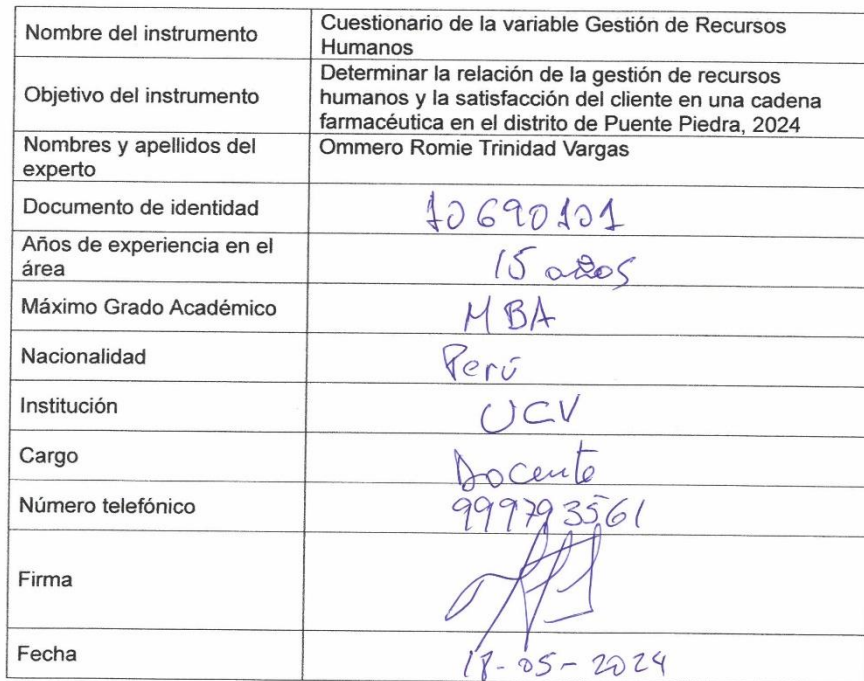 Nombre del instrumento
Cuestionario de la variable Gestión de Recursos
Humanos
Objetivo del instrumento
Determinar la relación de la gestión de recursos
humanos y la satisfacción del cliente en una cadena
farmacéutica en el distrito de Puente Piedra, 2024
Nombres y apellidos del
experto
Ommero Romie Trinidad Vargas
Documento de identidad
10690101
Años de experiencia en el
área
15 años
Máximo Grado Académico
MBA
Nacionalidad
Perú
Institución
UCV
Cargo
Docente
Número telefónico
999793561
Firma
Fecha
18-05-2024